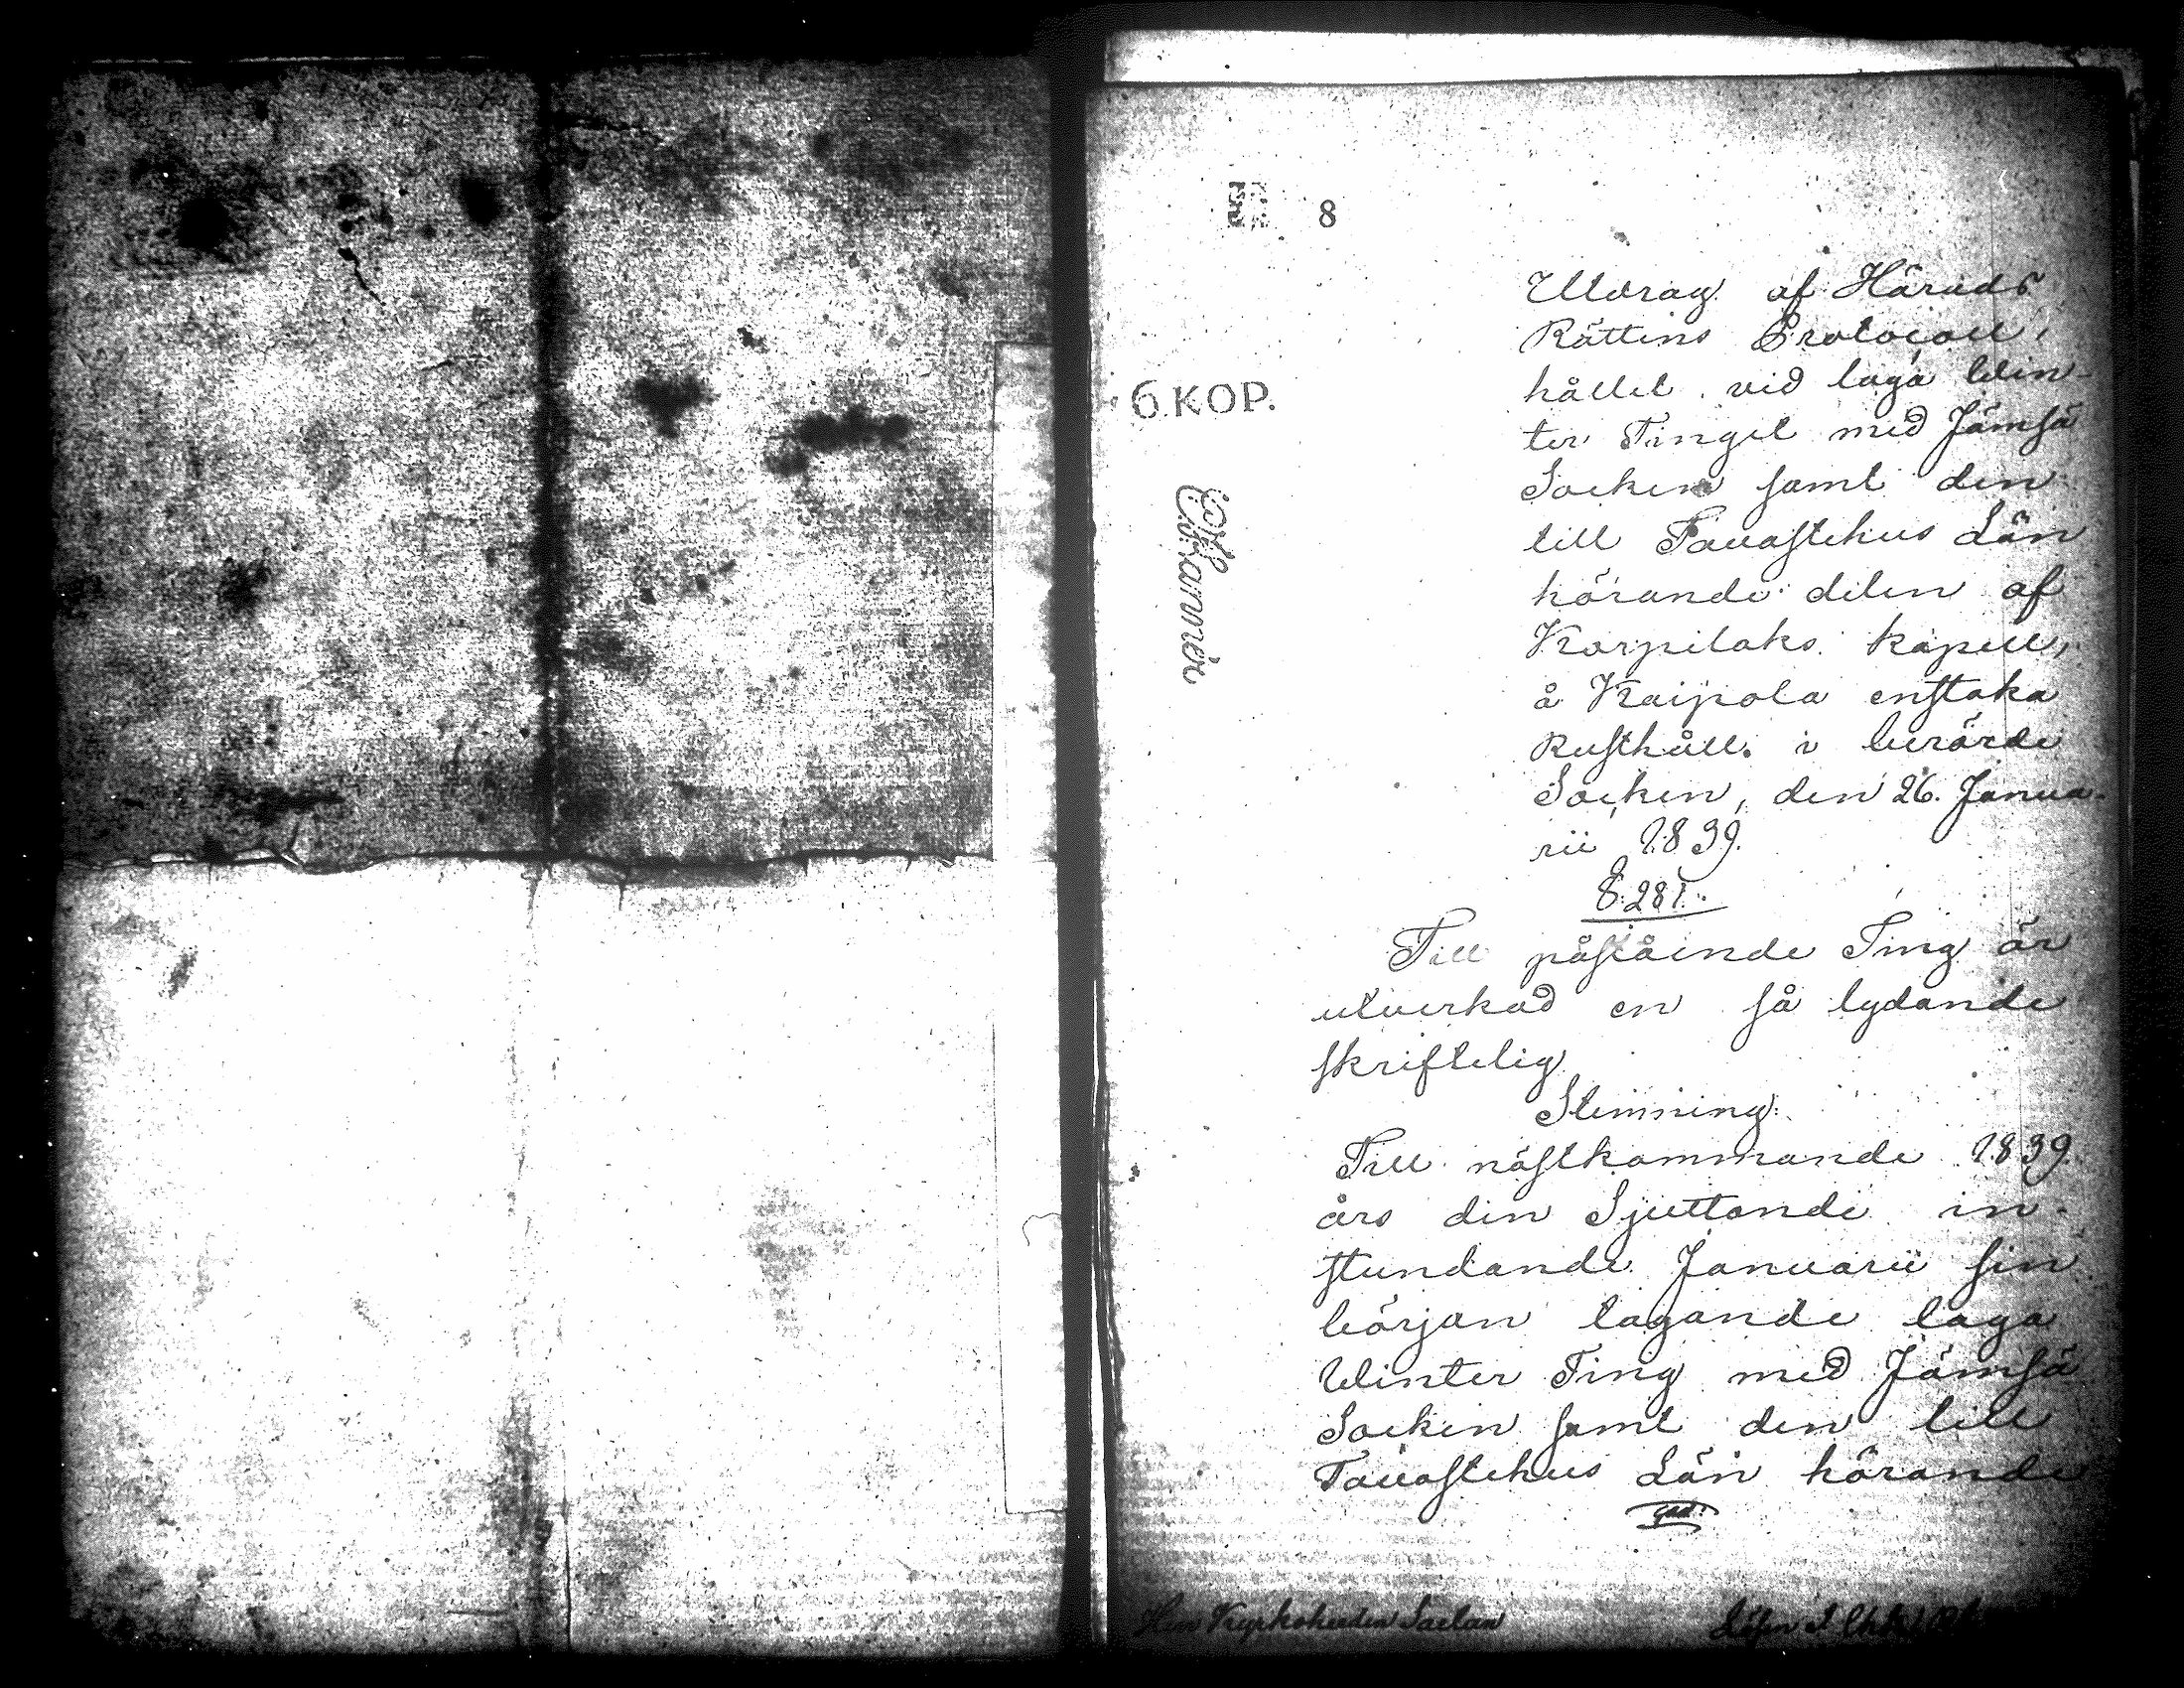 8
6.KOP.
Utdrag af Härads
Rättens Protocoll,
hållet vid laga Win-
ter Tinget med Jämsä
Socken samt den
till Tavastehus Län
hörande delen af
Korpilaks kapell,
å Kaipola enstaka
Rusthåll i berörde
Socken, den 26. Janua-
rii 1839.
§. 281.
Till påstående Ting är
utverkad en så lydande
skriftelig
Stemning:
Till nästkommande 1839
års den Sjuttonde in-
stundande Januarii sin
början tagande laga
Winter Ting med Jämsä
Socken samt den till
Tavastehus Län hörande
Herr Kyrkoherden Saelan